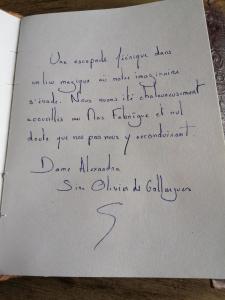 Une escapade féérique dans
un lieu magique où notre imaginaire
s'évade. Nous avons été chaleureusement
accueillis au Mas Fabrègue et nul
doute que nos pas nous y reconduiront.
Dame Alexandra
Sire Olivier de Gallargues